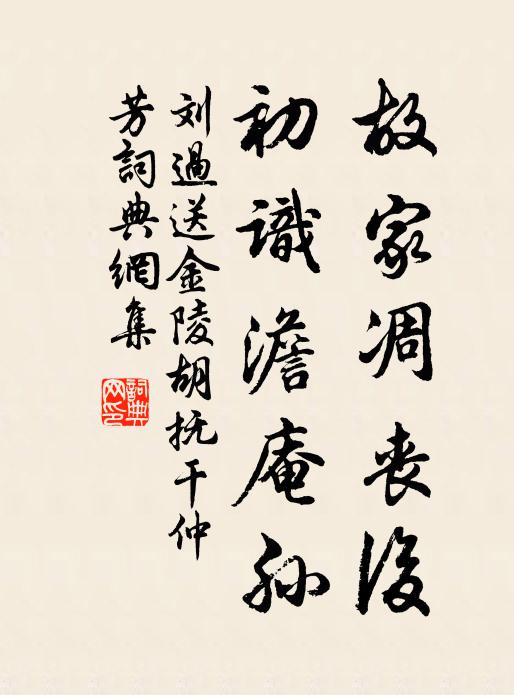 故家凋丧後
初識澹庵孙
刘過送金陵胡抚干仲
芳詞典網集
詞典網印